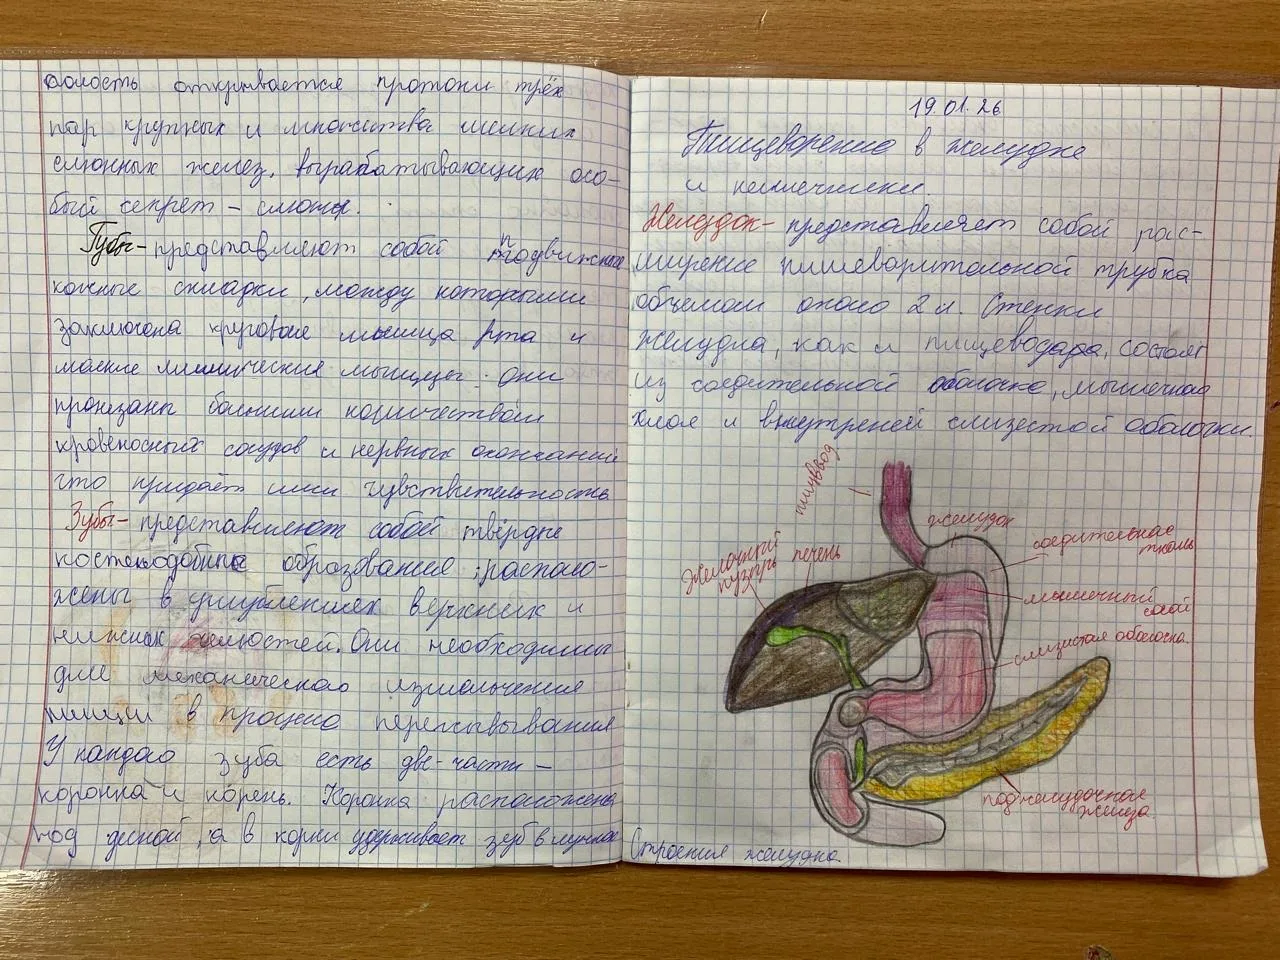 полость открывается протоки трёх
пар крупных и множества мелких
слюнных желез, вырабатывающих осо-
бый секрет – слюны.
Губы-представляют собой подвижные
кожные складки, между которыми
заключена круговая мышца рта и
мелкие мимические мышцы. Они
пронзаны большим количеством
кровеносных сосудов и нервных окончаний
что придаёт ими чувствительность
Зубы-представляют собой твёрдые
костеподобные образования, располо-
жены в углублениях верхних и
нижних челюстей. Они необходимы
для механического измельчения
пищи в процессе пережёвывания
У каждого зуба есть две-части –
коронка и корень. Коронка расположена
над десной, а в корни удерживает зуб в лунке
19.01.26
Пищеворение в желудке
и кишечники.
Желудок-представляет собой рас-
ширение пищеварительной трубка
объемом около 2 л. Стенки
желудка, как и пищеводара, состоят
из соедительной оболочке, мышечная
слоя и внутреней слизестой оболочки.
пищввод
желудок
соедительная
ткань
Желчный
пузырь
печень
мышечный
слой
слизистая оболочка
поджелудочная
железа
Строения желудка